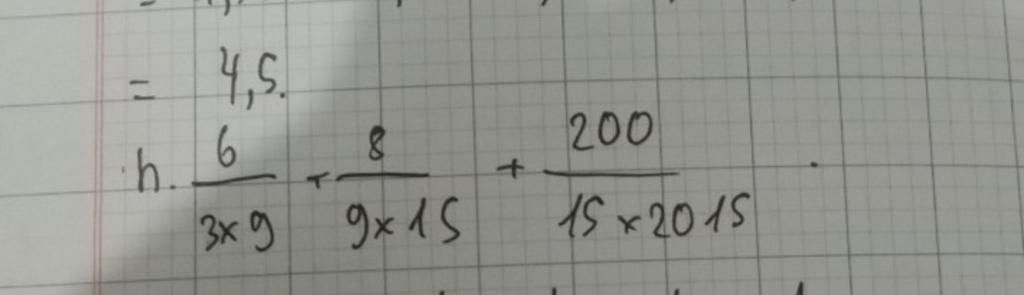 = 4,5.
h. 6/(3×9) + 8/(9×15) + 200/(15×2015) .